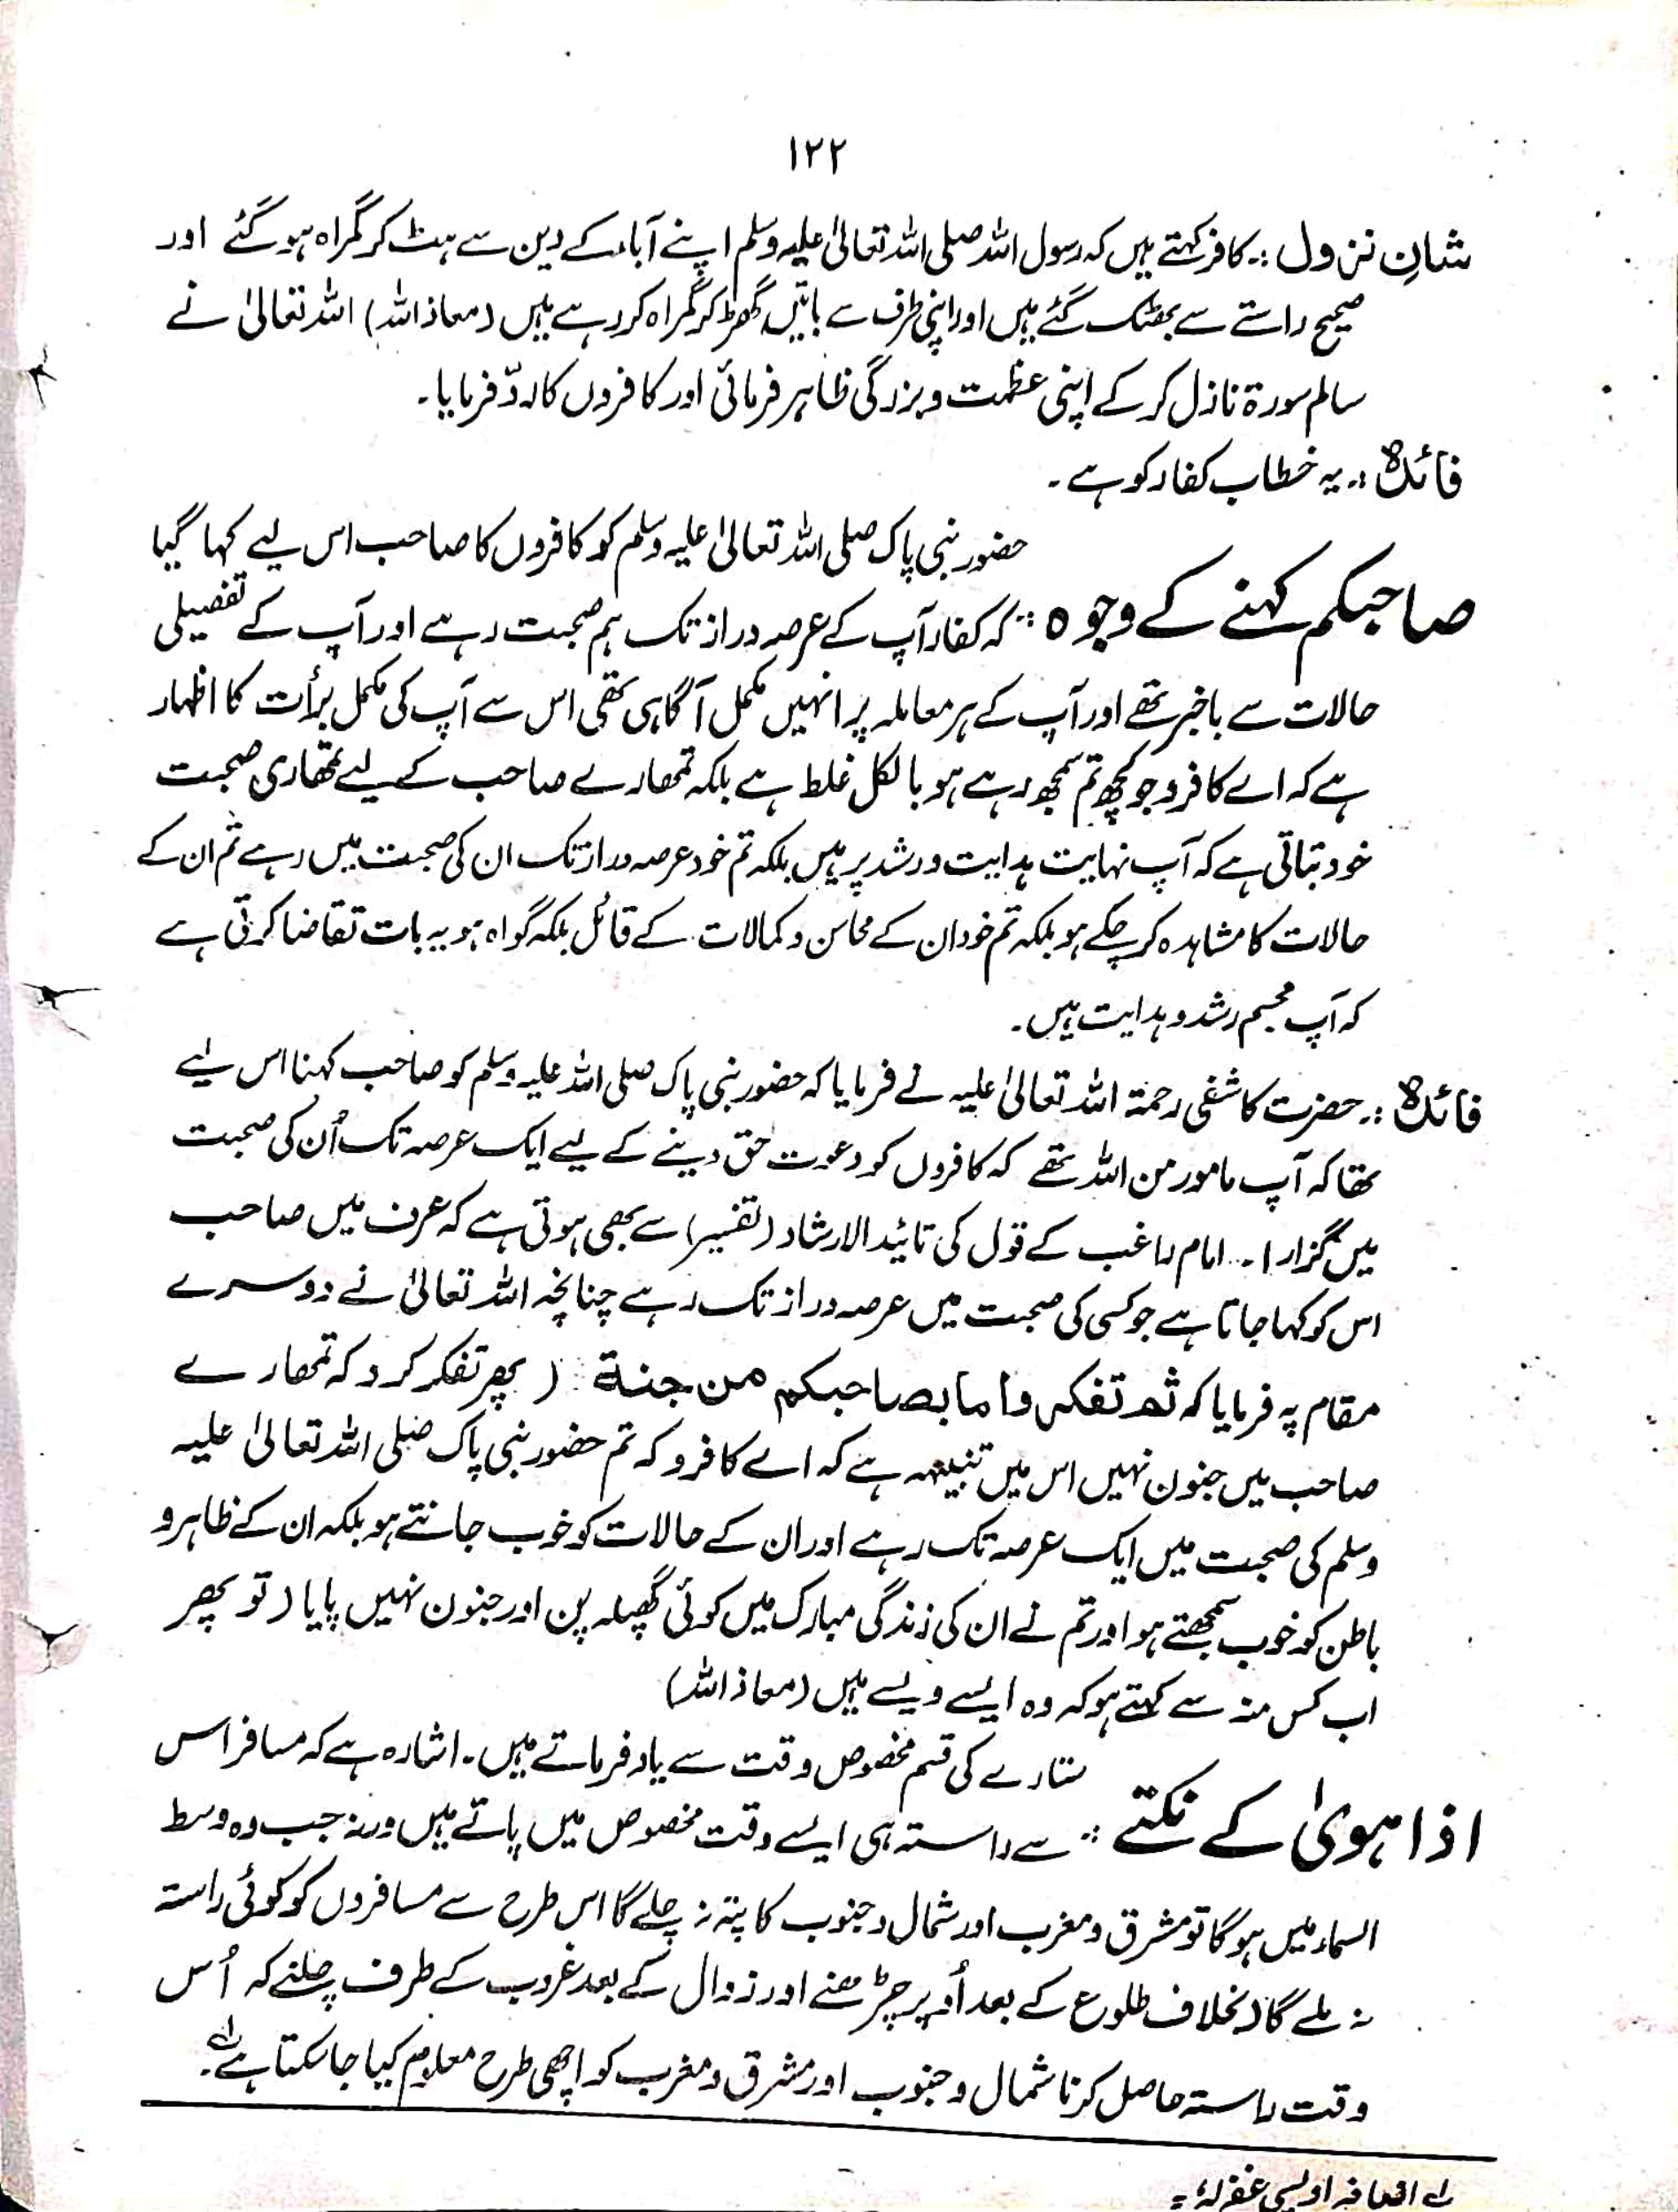 ۱۲۲
شانِ نزول :۔ کافر کہتے ہیں کہ رسول اللہ صلی اللہ تعالیٰ علیہ وسلم اپنے آباء کے دین سے ہٹ کر گمراہ ہو گئے اور
صحیح راستے سے بھٹک گئے ہیں اور اپنی طرف سے باتیں گھڑ کر گمراہ کر رہے ہیں (معاذ اللہ) اللہ تعالیٰ نے
سالم سورۃ نازل کر کے اپنی عظمت و بزرگی ظاہر فرمائی اور کافروں کا ردّ فرمایا۔
فائدہ :۔ یہ خطاب کفار کو ہے۔
حضور نبی پاک صلی اللہ تعالیٰ علیہ وسلم کو کافروں کا صاحب اس لیے کہا گیا
صاحبکم کہنے کے وجوہ :: کہ کفار آپ کے عرصہ دراز تک ہم صحبت رہے اور آپ کے تفصیلی
حالات سے باخبر تھے اور آپ کے ہر معاملہ پر انہیں مکمل آگاہی تھی اس سے آپ کی مکمل برأت کا اظہار
ہے کہ اے کافرو جو کچھ تم سمجھ رہے ہو بالکل غلط ہے بلکہ تمھارے صاحب کے لیے تمھاری صحبت
خود بتاتی ہے کہ آپ نہایت ہدایت ورشد پر ہیں بلکہ تم خود عرصہ دراز تک ان کی صحبت میں رہے تم ان کے
حالات کا مشاہدہ کر چکے ہو بلکہ تم خود ان کے محاسن و کمالات کے قائل بلکہ گواہ ہو یہ بات تقاضا کرتی ہے
کہ آپ مجسم رشد و ہدایت ہیں۔
فائدہ :۔ حضرت کاشفی رحمۃ اللہ تعالیٰ علیہ نے فرمایا کہ حضور نبی پاک صلی اللہ علیہ وسلم کو صاحب کہنا اس لیے
تھا کہ آپ مامور من اللہ تھے کہ کافروں کو دعوت حق دینے کے لیے ایک عرصہ تک اُن کی صحبت
میں گزارا۔ امام راغب کے قول کی تائید الارشاد (تفسیر) سے بھی ہوتی ہے کہ عرف میں صاحب
اس کو کہا جاتا ہے جو کسی کی صحبت میں عرصہ دراز تک رہے چنانچہ اللہ تعالیٰ نے دوسرے
مقام پہ فرمایا کہ ثم تفکروا ما بصاحبکم من جنۃ : ( پھر تفکر کرو کہ تمھارے
صاحب میں جنون نہیں اس میں تنبیہہ ہے کہ اے کافرو کہ تم حضور نبی پاک صلی اللہ تعالیٰ علیہ
وسلم کی صحبت میں ایک عرصہ تک رہے اور ان کے حالات کو خوب جانتے ہو بلکہ ان کے ظاہر و
باطن کو خوب سمجھتے ہو اور تم نے ان کی زندگی مبارک میں کوئی گھپلہ پن اور جنون نہیں پایا ( تو پھر
اب کس منہ سے کہتے ہو کہ وہ ایسے ویسے ہیں (معاذ اللہ)
ستارے کی قسم مخصوص وقت سے یاد فرماتے ہیں۔ اشارہ ہے کہ مسافر اس
اذا ہویٰ کے نکتے :: سے راستہ ہی ایسے وقت مخصوص میں پاتے ہیں ورنہ جب وہ وسط
السماء میں ہو گا تو مشرق و مغرب اور شمال و جنوب کا پتہ نہ چلے گا اس طرح سے مسافروں کو کوئی راستہ
نہ ملے گا (بخلاف طلوع کے بعد اُوپر چڑھنے اور زوال کے بعد غروب کے طرف چلنے کہ اُس
وقت راستہ حاصل کرنا شمال و جنوب اور مشرق و مغرب کو اچھی طرح معلوم کیا جا سکتا ہے لہ۔
لہ اضافہ اویسی غفرلہٗ ۔